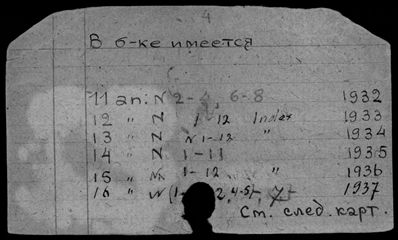 4
В б-ке имеется
11 an: N 2-4, 6-8 1932
12 " N 1-12 Index 1933
13 " N 1-12 " 1934
14 " N 1-11 1935
15 " N 1-12 " 1936
16 " N (1- 2, 4-5)-, 7- 1937
См. след. карт.